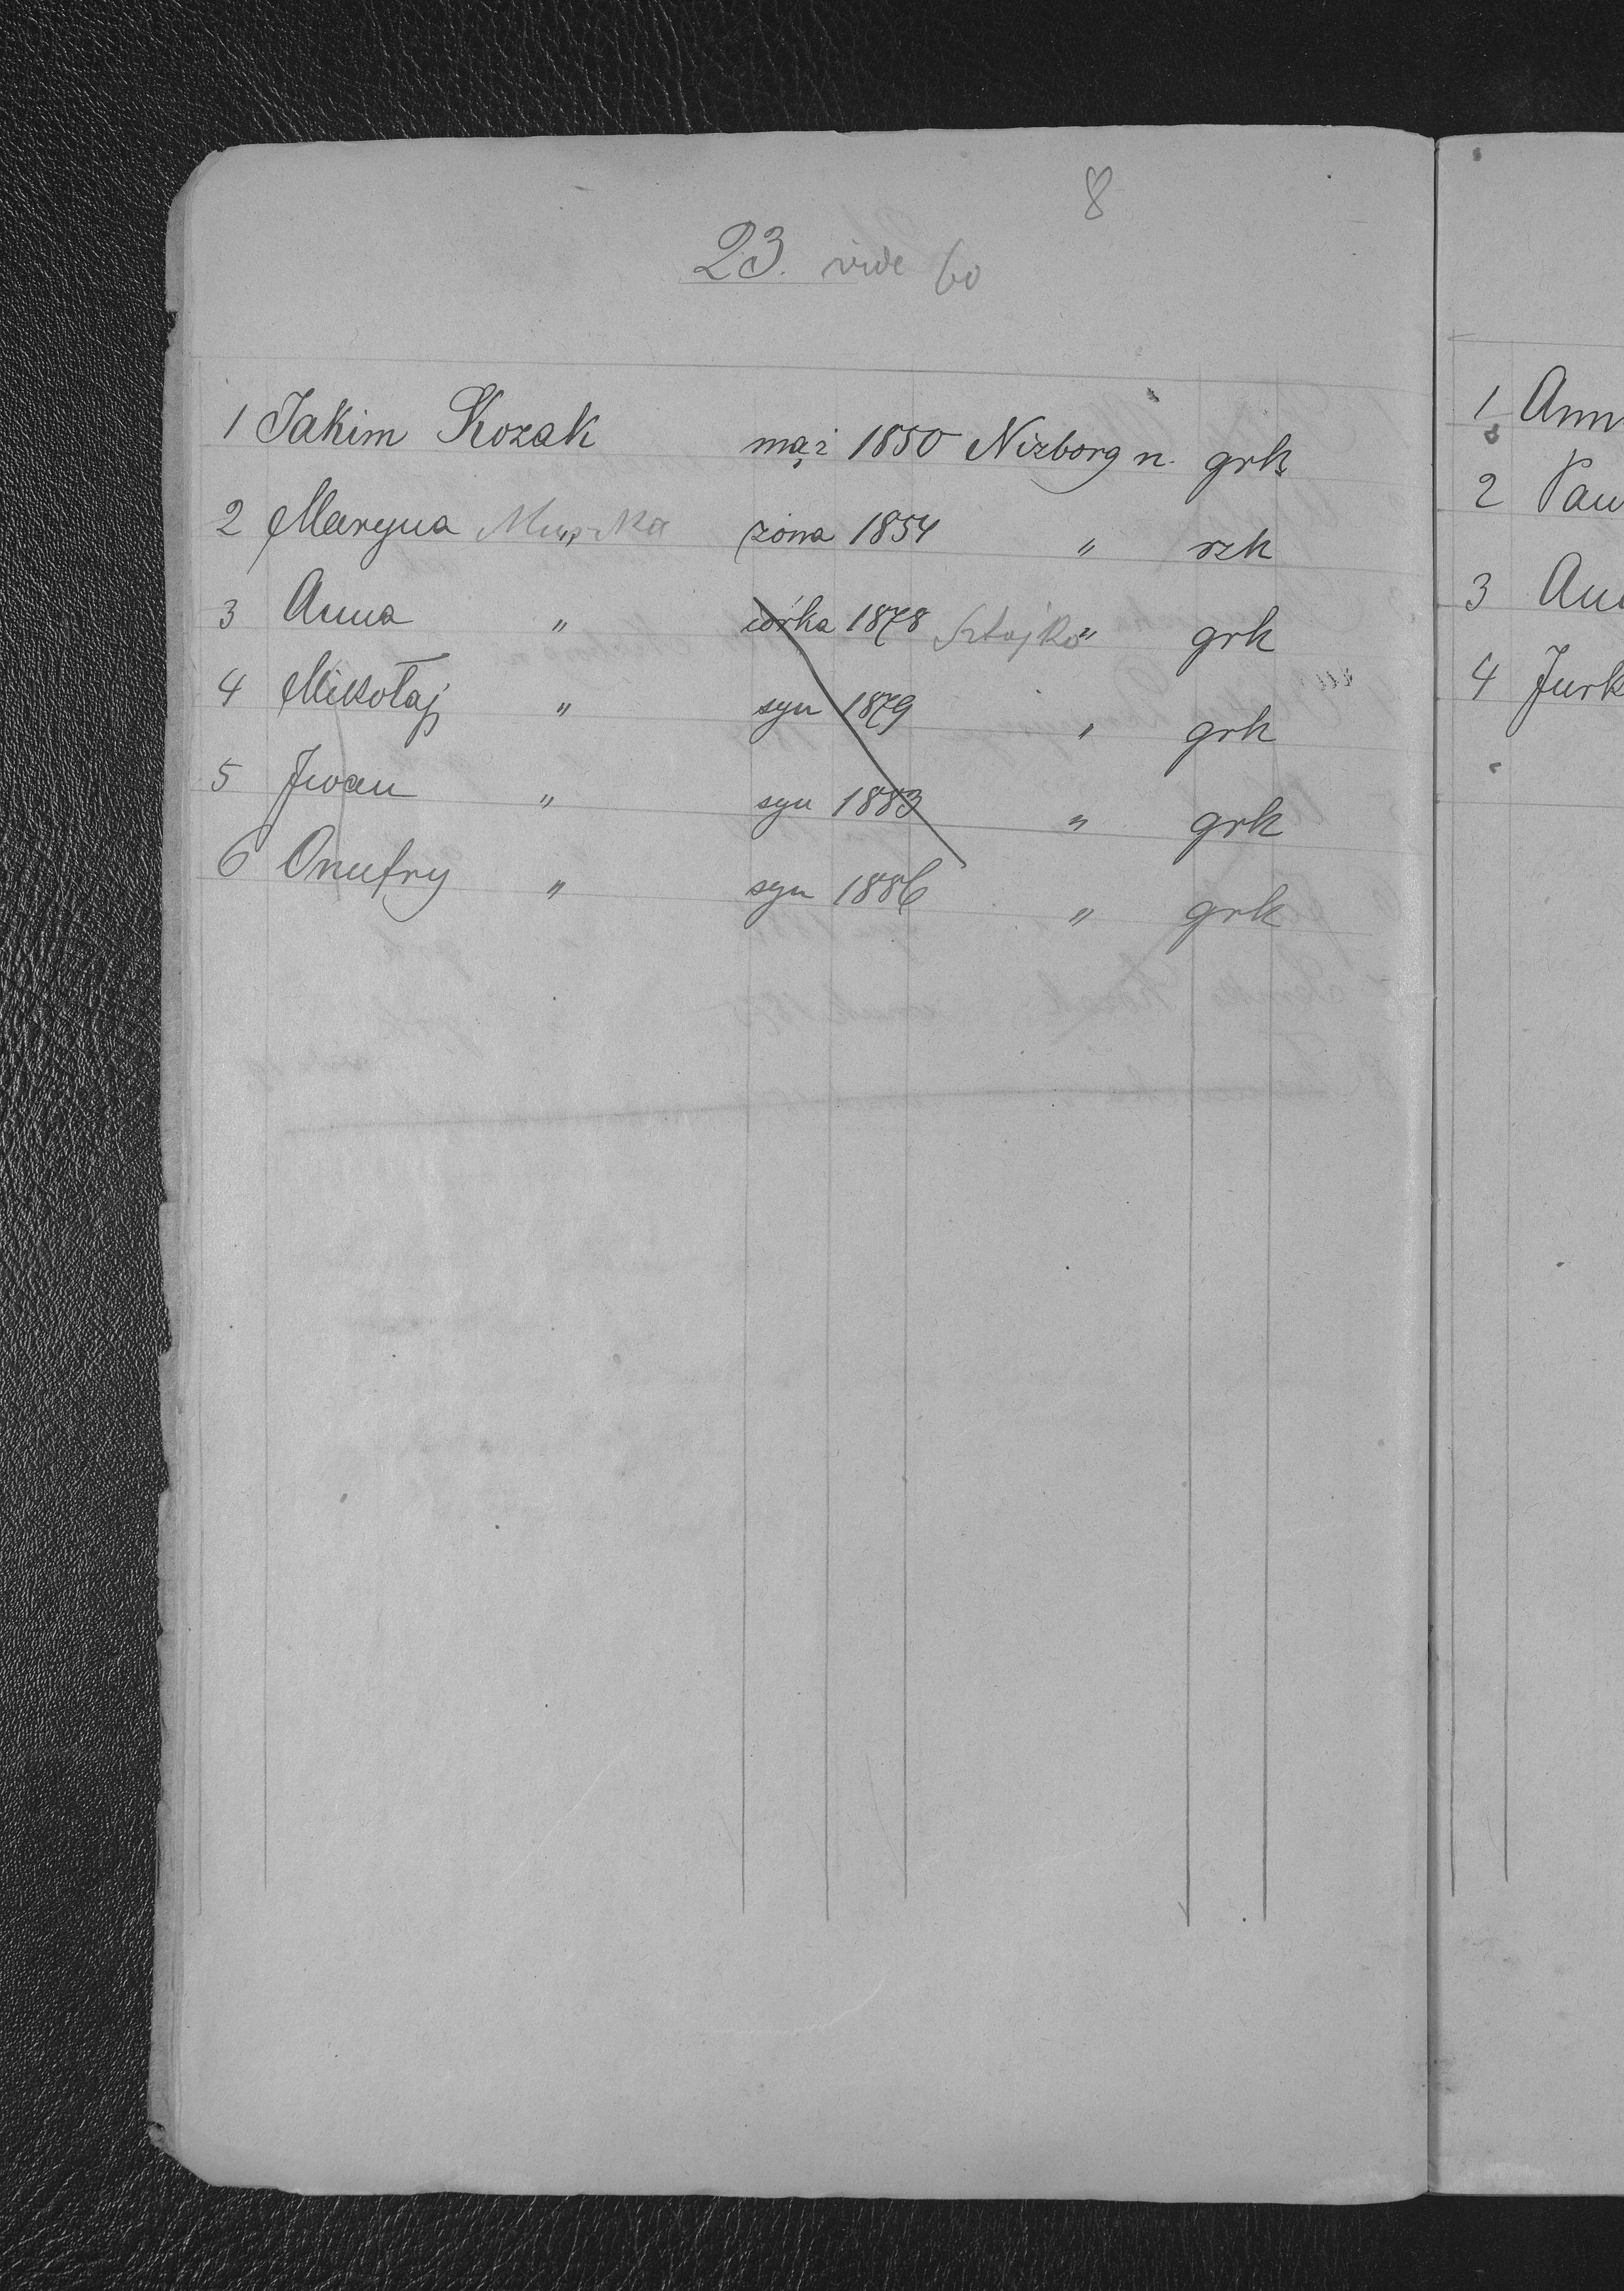 8
23. vide 60
1 Jakim Kozak mąż 1850 Niżborg n. grk
2 Maryna " żona 1854 " rzk
3 Anna " córka 1878 Sztojko " grk
4 Mikołaj " syn 1879 " grk
5 Iwan " syn 1883 " grk
6 Onufry " syn 1886 " grk
1 Ann
2 Pau
3 Ann
4 Jurk